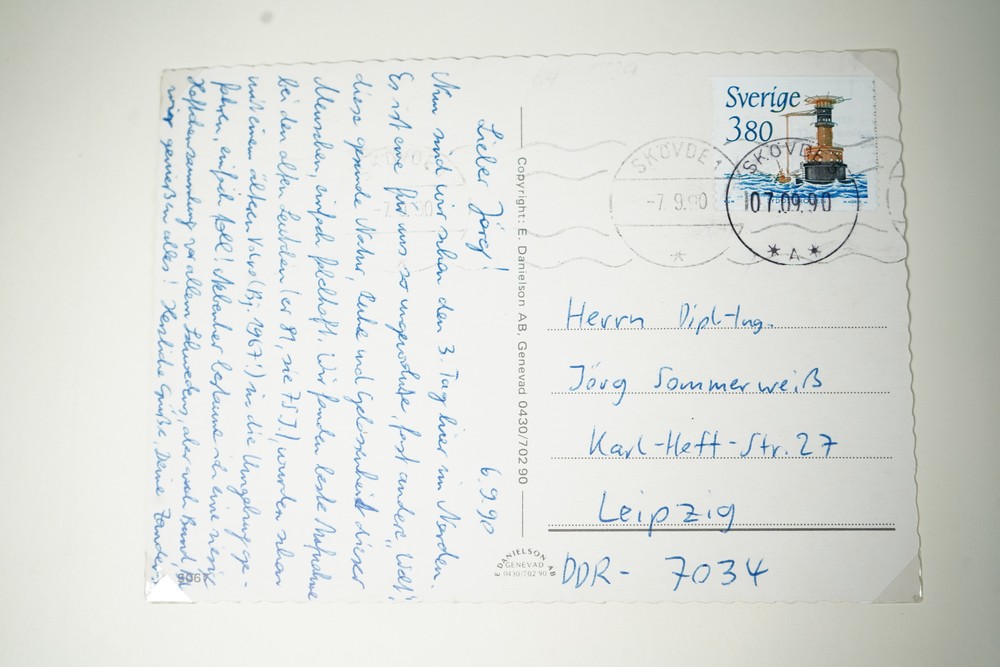 6.9.90
Lieber Jörg!
Nun sind wir schon den 3. Tag hier im Norden.
Es ist eine für uns so ungewohnte, fast andere "Welt",
diese gesunde Natur, Ruhe und Gelassenheit dieser
Menschen, einfach fabelhaft. Wir fanden beste Aufnahme
bei den alten Leutchen (er 81, sie 75 J.), wurden schon
mit einem älteren Volvo (Bj. 1967!) in die Umgebung ge-
fahren, einfach toll! Nebenher bestaune ich eine riesige
vor allem Schweden, aber auch
wir genießen alles! Herzliche Grüße, Deine
9067
Copyright: E. Danielson AB, Genevad 0430/702 90
E DANIELSON AB
GENEVAD
0430/702 90
Sverige
380
SKÖVDE 1
-7 9.90
SKÖVDE
07.09.90
* A *
Herrn Dipl-Ing.
Jörg Sommerweiß
Karl-Heft-Str. 27
Leipzig
DDR- 7034